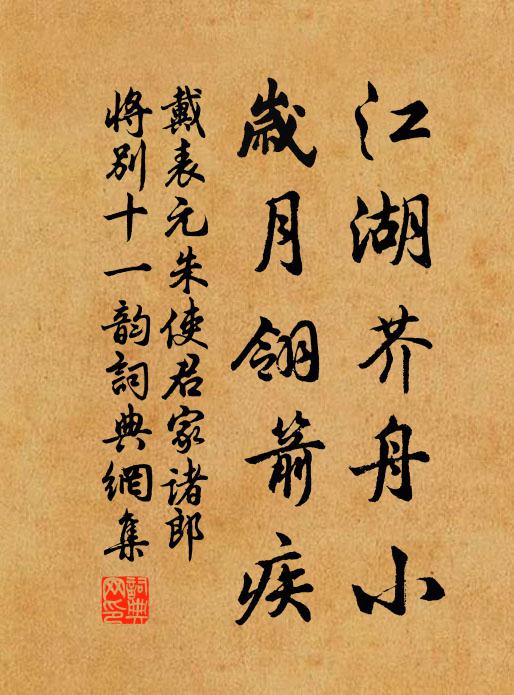 江湖芥舟小
歲月翎箭疾
戴表元朱使君家诸郎
将别十一韵詞典網集
詞典网印